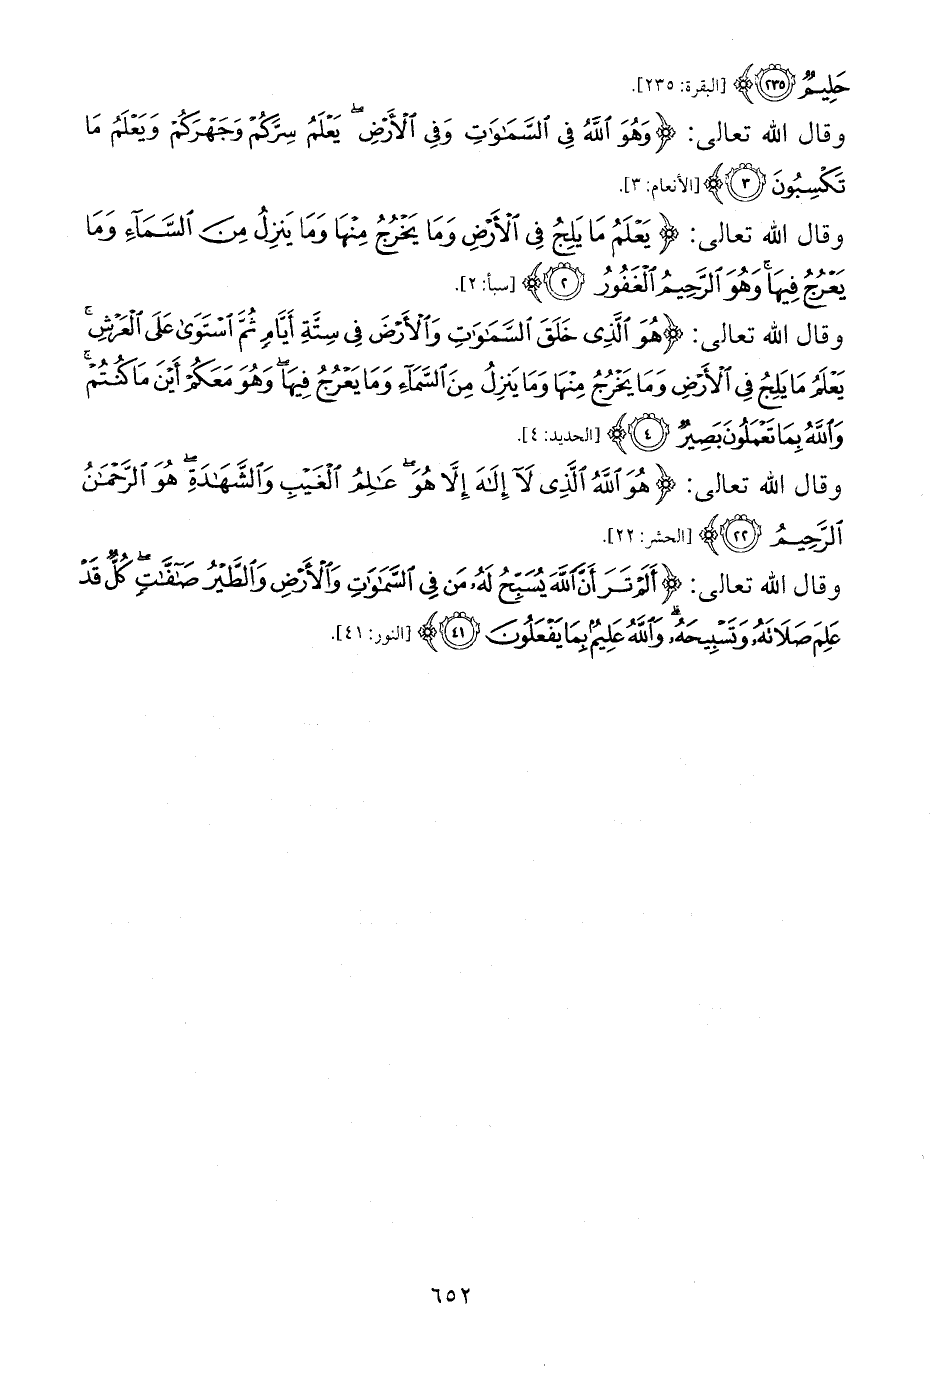 حَلِيمٌ ﴿٢٣٥﴾ [البقرة: ٢٣٥].
وقال الله تعالى: ﴿وَهُوَ ٱللَّهُ فِى ٱلسَّمَٰوَٰتِ وَفِى ٱلْأَرْضِ ۖ يَعْلَمُ سِرَّكُمْ وَجَهْرَكُمْ وَيَعْلَمُ مَا
تَكْسِبُونَ ﴿٣﴾ [الأنعام: ٣].
وقال الله تعالى: ﴿يَعْلَمُ مَا يَلِجُ فِى ٱلْأَرْضِ وَمَا يَخْرُجُ مِنْهَا وَمَا يَنزِلُ مِنَ ٱلسَّمَآءِ وَمَا
يَعْرُجُ فِيهَا ۚ وَهُوَ ٱلرَّحِيمُ ٱلْغَفُورُ ﴿٢﴾ [سبأ: ٢].
وقال الله تعالى: ﴿هُوَ ٱلَّذِى خَلَقَ ٱلسَّمَٰوَٰتِ وَٱلْأَرْضَ فِى سِتَّةِ أَيَّامٍ ثُمَّ ٱسْتَوَىٰ عَلَى ٱلْعَرْشِ ۚ
يَعْلَمُ مَا يَلِجُ فِى ٱلْأَرْضِ وَمَا يَخْرُجُ مِنْهَا وَمَا يَنزِلُ مِنَ ٱلسَّمَآءِ وَمَا يَعْرُجُ فِيهَا ۖ وَهُوَ مَعَكُمْ أَيْنَ مَا كُنتُمْ ۚ
وَٱللَّهُ بِمَا تَعْمَلُونَ بَصِيرٌ ﴿٤﴾ [الحديد: ٤].
وقال الله تعالى: ﴿هُوَ ٱللَّهُ ٱلَّذِى لَآ إِلَٰهَ إِلَّا هُوَ ۖ عَٰلِمُ ٱلْغَيْبِ وَٱلشَّهَٰدَةِ ۖ هُوَ ٱلرَّحْمَٰنُ
ٱلرَّحِيمُ ﴿٢٢﴾ [الحشر: ٢٢].
وقال الله تعالى: ﴿أَلَمْ تَرَ أَنَّ ٱللَّهَ يُسَبِّحُ لَهُۥ مَن فِى ٱلسَّمَٰوَٰتِ وَٱلْأَرْضِ وَٱلطَّيْرُ صَٰٓفَّٰتٍ ۖ كُلٌّ قَدْ
عَلِمَ صَلَاتَهُۥ وَتَسْبِيحَهُۥ ۗ وَٱللَّهُ عَلِيمٌۢ بِمَا يَفْعَلُونَ ﴿٤١﴾ [النور: ٤١].
٦٥٢